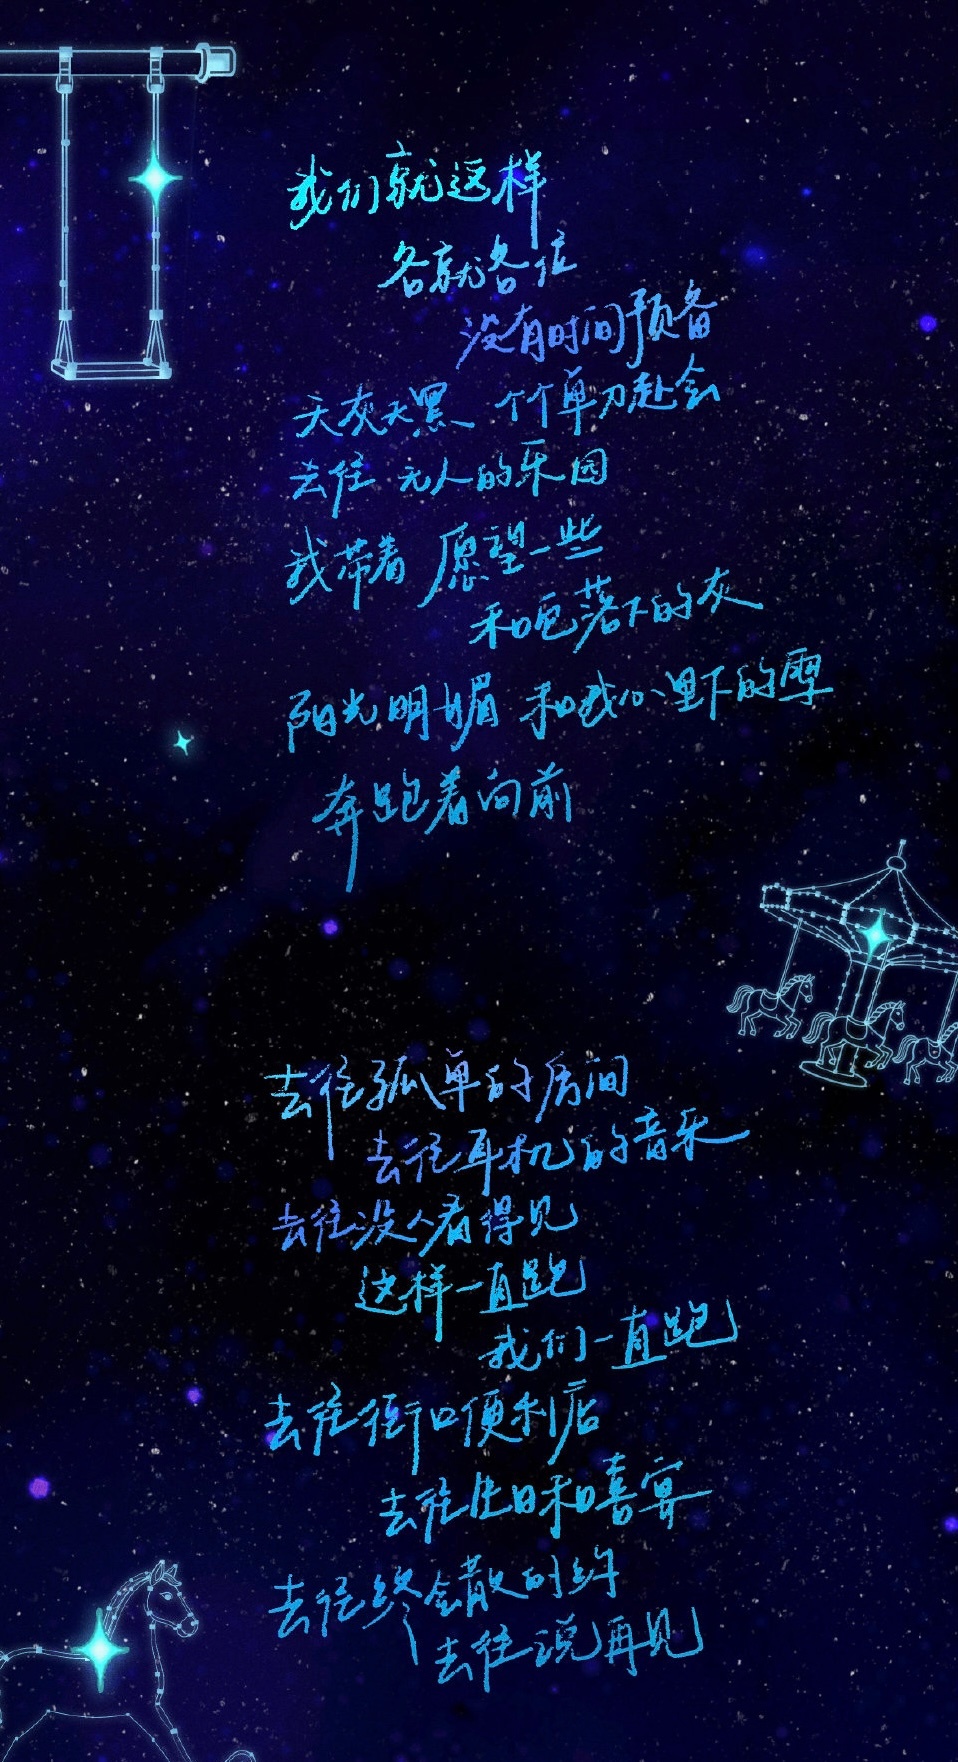 我们就这样
各就各位
没有时间预备
天灰天黑 个个单刀赴会
去往 无人的乐园
我带着 愿望一些
和它落下的灰
阳光明媚 和我心里下的雪
奔跑着向前
去往孤单的房间
去往耳机的音乐
去往没人看得见
这样一直跑
我们一直跑
去往街口便利店
去往生日和喜宴
去往终会散的约
去往说再见